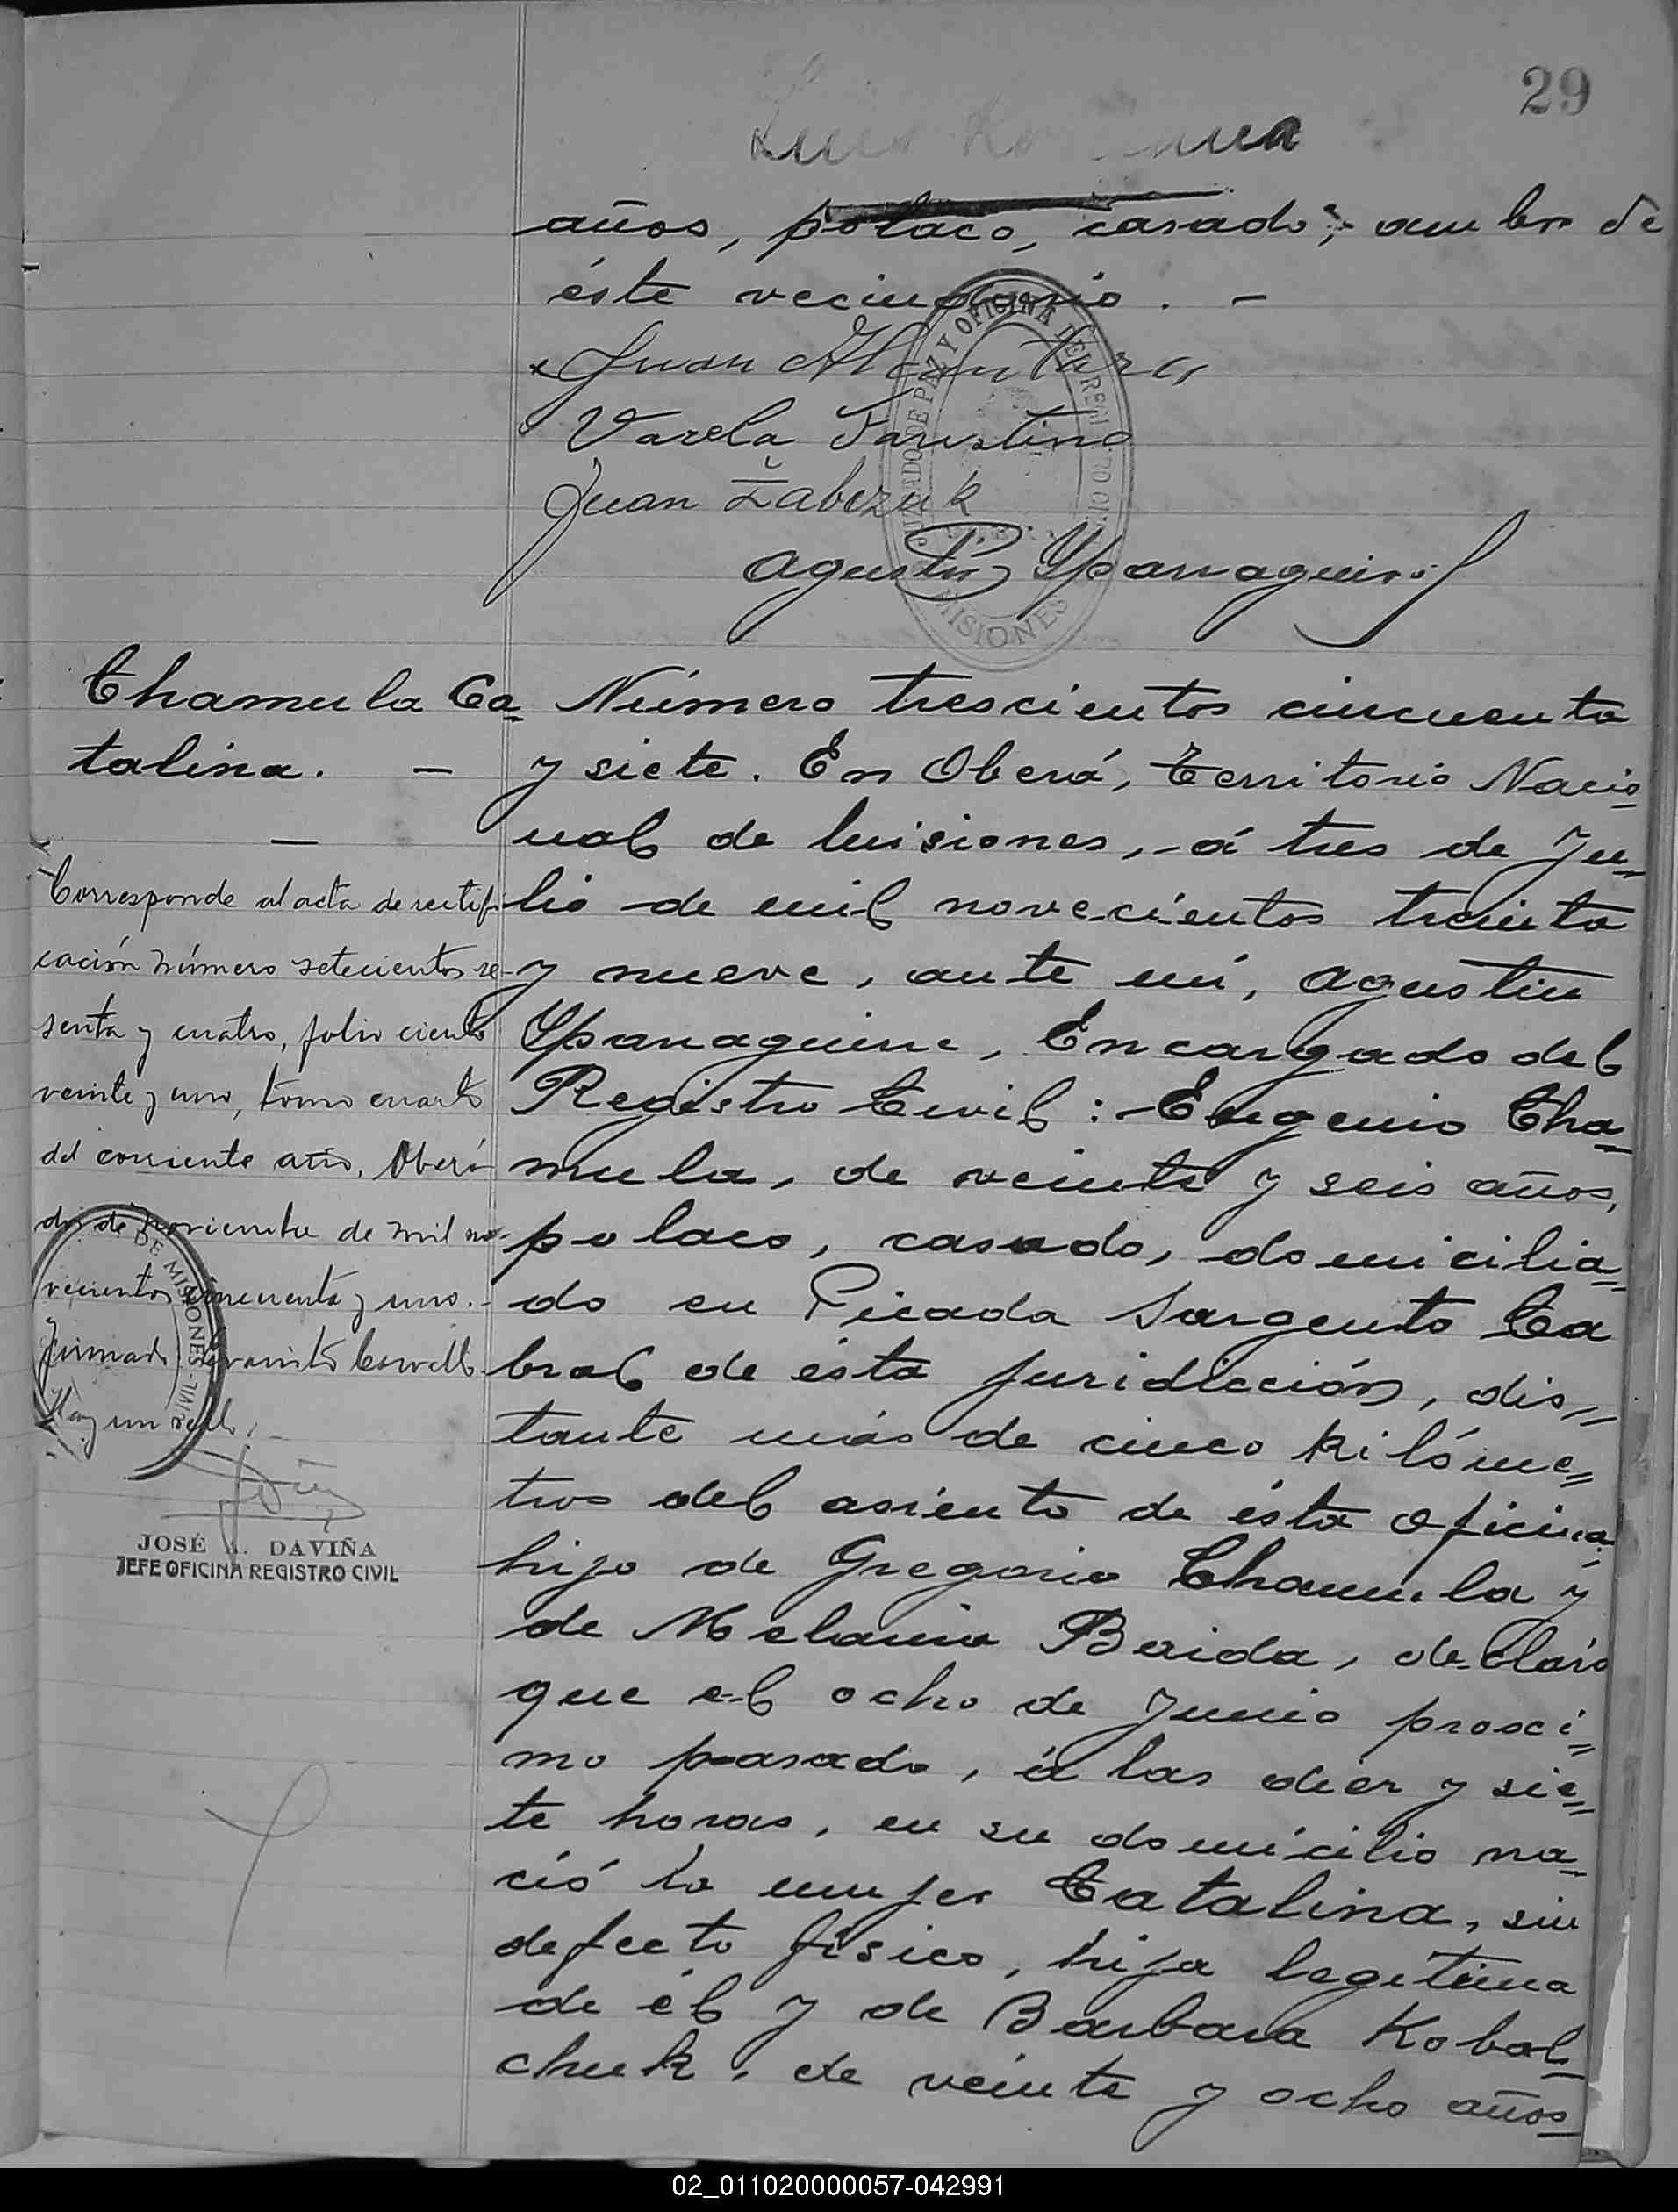 29
años, polaco, casado; ambos de
éste vecindario. -
Juan Alcantara
Varela Faustino
Juan Žabczuk
Agustin Yparraguirre
JUZGADO DE PAZ Y OFICINA DEL REGISTRO CIVIL
MISIONES
Chamula Ca-
talina. -
-
Número trescientos cincuenta
y siete. En Oberá, Territorio Nacio-
nal de Misiones, á tres de Ju-
lio de mil novecientos treinta
y nueve, ante mí, Agustin
Yparraguirre, Encargado del
Registro Civil: Eugenio Cha-
mula, de veinte y seis años,
polaco, casado, domicilia-
do en Picada Sargento Ca
bral de ésta juridicción, dis-
tante más de cinco kilóme-
tros del asiento de ésta oficina,
hijo de Gregorio Chamula y
de Melania Baida, declaró
que el ocho de Junio proxi-
mo pasado, á las diez y sie-
te horas, en su domicilio na-
ció la mujer Catalina, sin
defecto fisico, hija legitima
de él y de Barbara Kobal-
chuk, de veinte y ocho años
Corresponde al acta de rectifi-
cación número setecientos se-
senta y cuatro, folio ciento
veinte y uno, tomo cuarto
del corriente año. Oberá
dos de noviembre de mil no-
vecientos cincuenta y uno.-
Firmado:
Hay un sello.-
DE MISIONES
CIVIL
JOSÉ A. DAVIÑA
JEFE OFICINA REGISTRO CIVIL
02_011020000057-042991